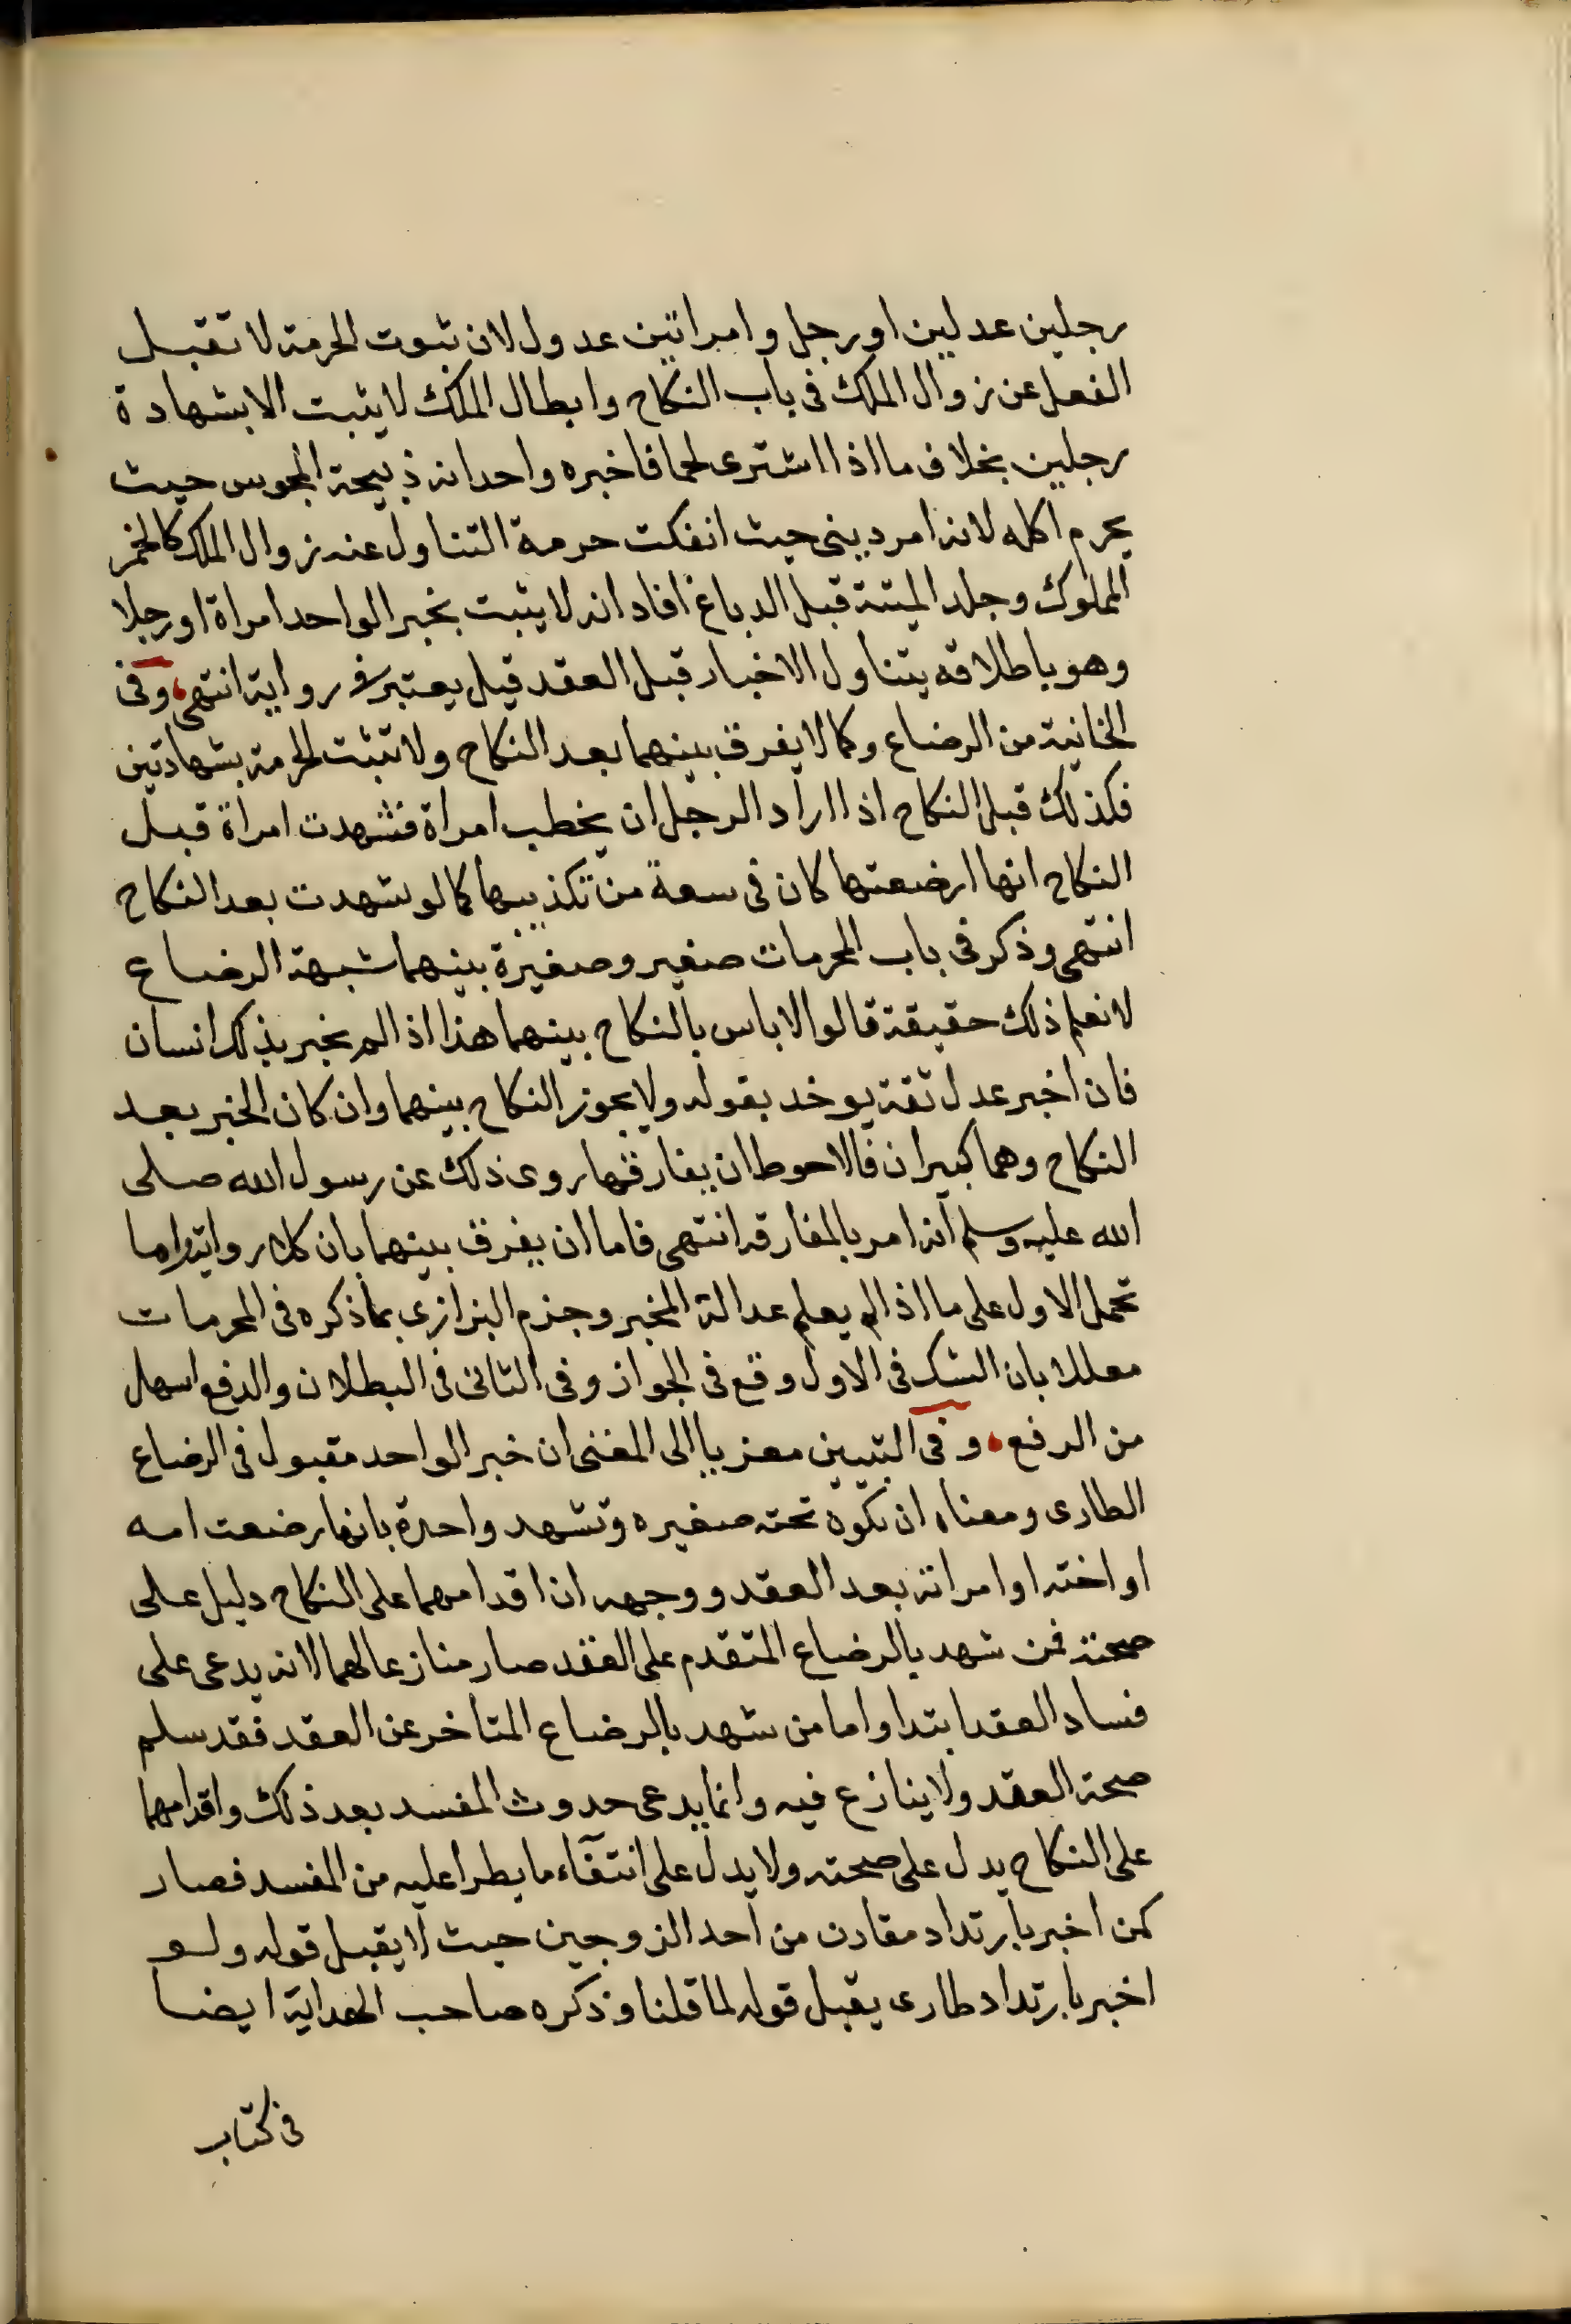 رجلين عدلين او رجل وامراتين عدول لان ثبوت الحرمة لا تقبل
الفصل عن زوال الملك فى باب النكاح وابطال الملك لا يثبت الا بشهادة
رجلين بخلاف ما اذا اشترى لحما فاخبره واحد انه ذبيحة المجوس حيث
يحرم اكله لانه امر دينى حيث انفكت حرمة التناول عند زوال الملك كالخمر
المملوك وجلد الميتة قبل الدباغ افاد انه لا يثبت بخبر الواحد امراة او رجلا
وهو باطلاقه يتناول الاخبار قبل العقد قيل يعتبر فى رواية انتهى وفى
الخانية من الرضاع وكما لا يفرق بينهما بعد النكاح ولا تثبت الحرمة بشهادتين
فكذلك قبل النكاح اذا اراد الرجل ان يخطب امراة فشهدت امراة قبل
النكاح انها ارضعتها كان فى سعة من تكذيبها كما لو شهدت بعد النكاح
انتهى وذكر فى باب المحرمات صغير وصغيرة بينهما شبهة الرضاع
لا نعلم ذلك حقيقة قالوا لا باس بالنكاح بينهما هذا اذا لم يخبر بذلك انسان
فان اخبر عدل ثقة يوخد بقوله ولا يجوز النكاح بينهما وان كان الخبر بعد
النكاح وهما كبيران فالاحوط ان يفارقها روى ذلك عن رسول الله صلى
الله عليه وسلم انه امر بالمفارقة انتهى فاما ان يفرق بينهما بان كلا رواية واما
تحمل الاول على ما اذا لم يعلم عدالة المخبر وجزم البزازى بما ذكره فى المحرمات
معللا بان الشك فى الاول وقع فى الجواز وفى الثانى فى البطلان والدفع اسهل
من الرفع وفى التبيين معزيا الى المغنى ان خبر الواحد مقبول فى الرضاع
الطارى ومعناه ان تكون تحته صغيرة وتشهد واحدة بانها رضعت امه
او اخته او امراته بعد العقد ووجهه ان اقدامهما على النكاح دليل على
صحته فمن شهد بالرضاع المتقدم على العقد صار منازعا لهما لانه يدعى على
فساد العقد ابتدا واما من شهد بالرضاع المتاخر عن العقد فقد سلم
صحة العقد ولا ينازع فيه وانما يدعى حدوث المفسد بعد ذلك واقدامهما
على النكاح يدل على صحته ولا يدل على انتفآء ما يطرا عليه من المفسد فصار
كمن اخبر بارتداد مقارن من احد الزوجين حيث لا يقبل قوله ولو
اخبر بارتداد طارى يقبل قوله لما قلنا وذكره صاحب الهداية ايضا
فى كتاب